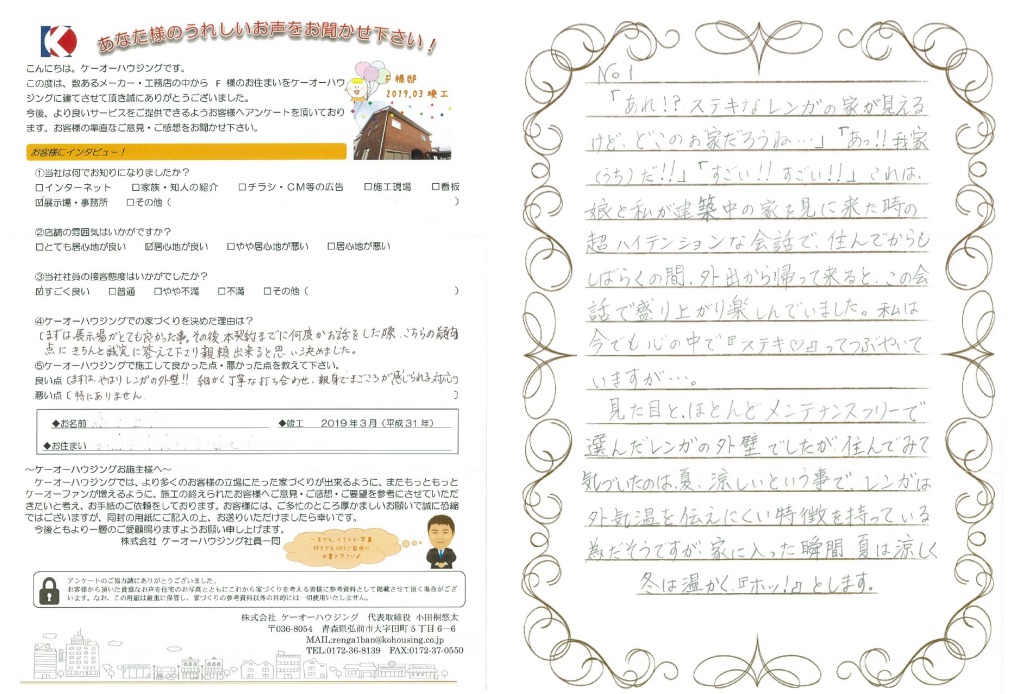 あなた様のうれしいお声をお聞かせ下さい！
こんにちは。ケーオーハウジングです。
この度は、数あるメーカー・工務店の中から F 様のお住まいをケーオーハウ
ジングに建てさせて頂き誠にありがとうございました。
今後、より良いサービスをご提供できるようお客様へアンケートを頂いており
ます。お客様の率直なご意見・ご感想をお聞かせ下さい。
F 様邸
2019.03 竣工
お客様にインタビュー！
①当社は何でお知りになりましたか？
□インターネット □家族・知人の紹介 □チラシ・CM等の広告 □施工現場 □看板
☑展示場・事務所 □その他（ ）
②店舗の雰囲気はいかがですか？
□とても居心地が良い ☑居心地が良い □やや居心地が悪い □居心地が悪い
③当社社員の接客態度はいかがでしたか？
☑すごく良い □普通 □やや不満 □不満 □その他（ ）
④ケーオーハウジングでの家づくりを決めた理由は？
（まずは、展示場がとても良かった事。その後、本契約までに何度かお話をした際、こちらの疑問
点にきちんと誠実に答えて下さり親頼出来ると思い決めました。
⑤ケーオーハウジングで施工して良かった点・悪かった点を教えて下さい。
良い点（まずは、やはりレンガの外壁!! 細かく丁寧な打ち合わせ、親身でまごころが感じられる対応）
悪い点（特にありません ）
◆お名前 ◆竣工 2019年3月（平成31年）
◆お住まい
～ケーオーハウジングお施主様へ～
ケーオーハウジングでは、より多くのお客様の立場にたった家づくりが出来るように、またもっともっと
ケーオーファンが増えるように、施工の終えられたお客様へご意見・ご感想・ご要望を参考にさせていただ
きたいと考え、お手紙のご依頼をしております。お客様には、ご多忙のところ厚かましいお願いで誠に恐縮
ではございますが、同封の用紙にご記入の上、お送りいただけましたら幸いです。
今後ともより一層のご愛顧賜りますようお願い申し上げます。
株式会社 ケーオーハウジング社員一同
アンケートのご協力誠にありがとうございました。
お客様から頂いた貴重なお声を住宅のお写真とともにこれから家づくりを考える皆様に参考資料として掲載させて頂く場合がござ
います。なお、この用紙は厳重に保管し、家づくりの参考資料以外の目的には一切使用いたしません。
株式会社 ケーオーハウジング 代表取締役 小田桐悠太
〒036-8054 青森県弘前市大字田町5丁目6－6
MAIL:renga1ban@kohousing.co.jp
TEL:0172-36-8139 FAX:0172-37-0550
No 1
「あれ!? ステキなレンガの家が見える
けど、どこのお家だろうね…」「あっ!! 我家
（うち）だ!!」「すごい!! すごい!!」 これは、
娘と私が建築中の家を見に来た時の
超ハイテンションな会話で、住んでからも
しばらくの間、外出から帰って来ると、この会
話で盛り上がり楽しんでいました。私は
今でも心の中で『ステキ♡』ってつぶやいて
いますが…。
見た目と、ほとんどメンテナンスフリーで
選んだレンガの外壁でしたが、住んでみて
気づいたのは、夏、涼しいという事で、レンガは
外気温を伝えにくい特徴を持っている
為だそうですが、家に入った瞬間、夏は涼しく
冬は温かく、『ホッ!』とします。